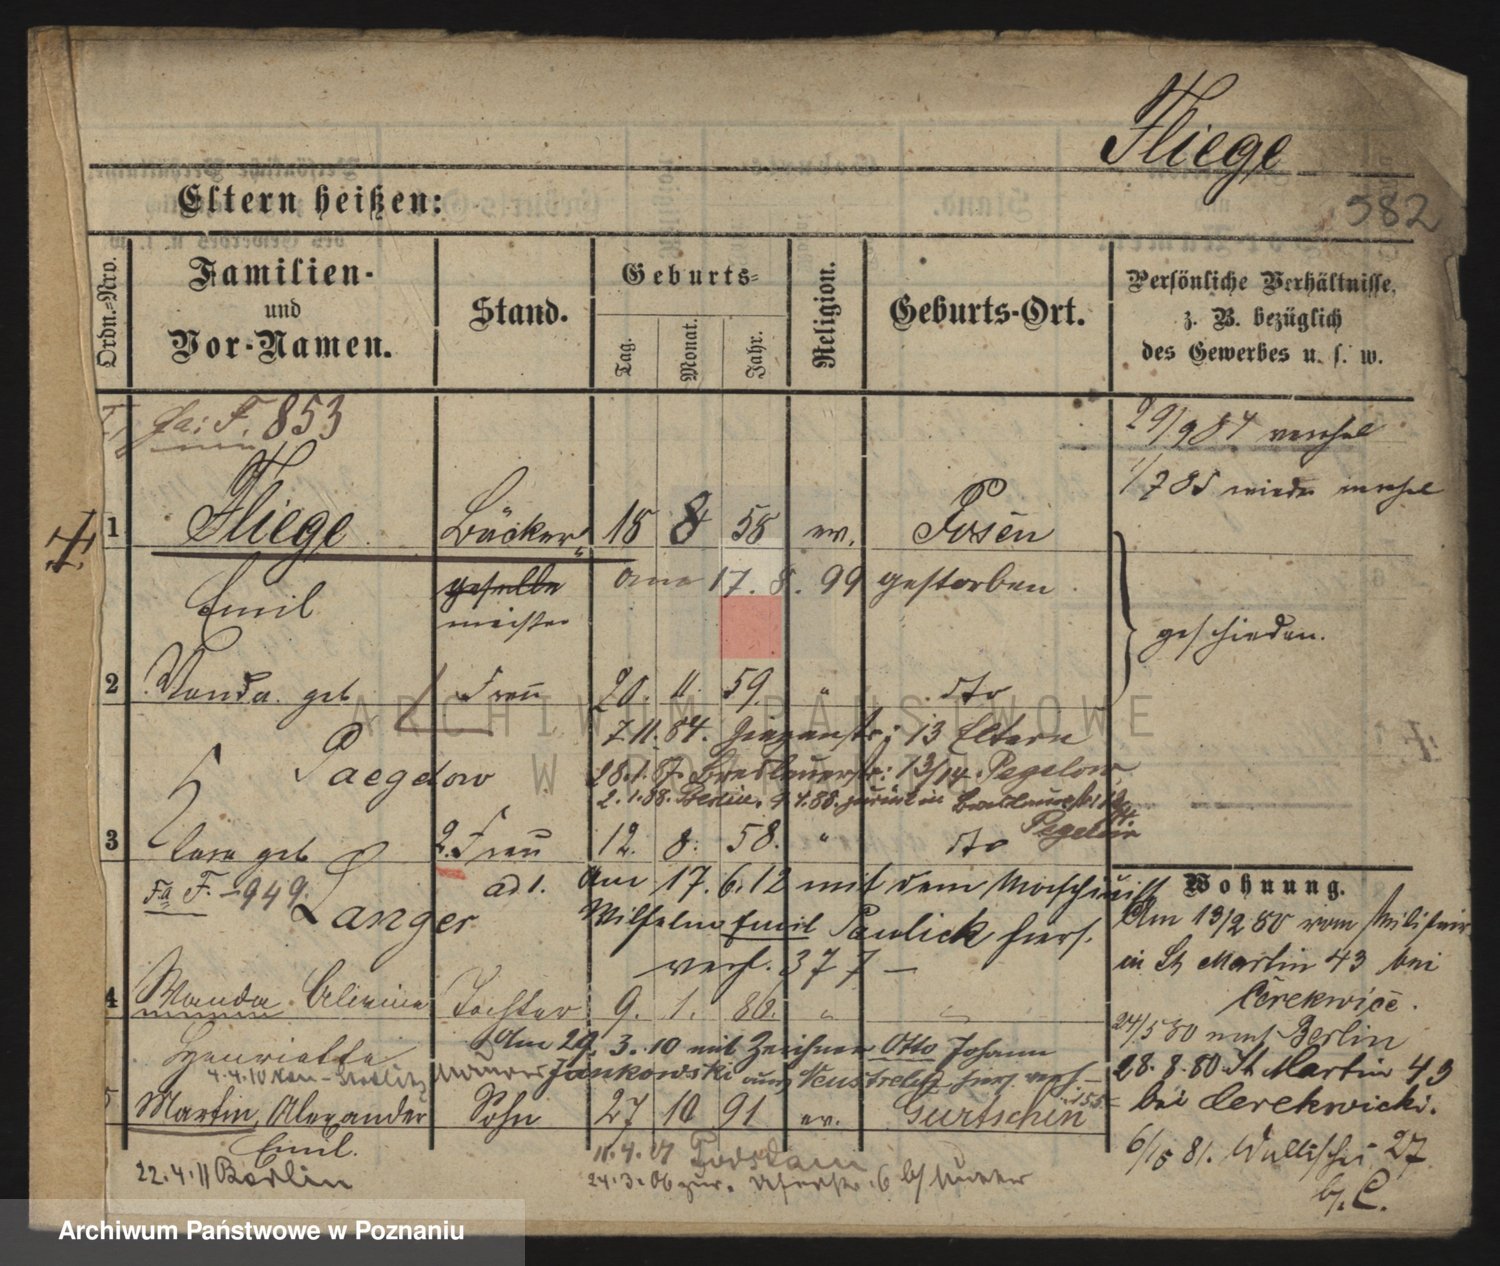 Fliege
582
Eltern heißen:
Ordn.-Nro.
Familien-
und
Vor-Namen.
Stand.
Geburts-
Tag.
Monat.
Jahr.
Religion.
Geburts-Ort.
Persönliche Verhältnisse,
z. B. bezüglich
des Gewerbes u. s. w.
fa: F. 853
29/9 84
1/7 85
1 Fliege Bäcker 18 8 58 ev. Posen
Emil geselle am 17. 8. 99 gestorben
meister
geschieden.
2 Wanda geb Frau 20. 11. 59. " dto
Paegelow 7.11.84. 13 Eltern
28.1.87. Breslauerstr: 13/14 Pegelow
2.1.88. Berlin. 9.4.88. zurück in
Pegelow
3 Clara geb 2. Frau 12. 8. 58. " dto
Fa F. - 949. Langer ad 1. Am 17. 6. 12 mit dem
Wilhelm Emil Paulick hier.
verh. 377 —
4 Wanda Alwine Tochter 9. 1. 80. " "
Henriette Am 29. 3. 10 mit Zeichner Otto Johann
4.4.10 Jankowski aus Neustrelitz hier verh. —
5 Martin, Alexander Sohn 27 10 91 ev. Gurtschin
Emil.
22.4.11 Berlin
11.4.07 Potsdam
24.3.06 zur. 6 b/ Mutter
Wohnung.
Am 13/2 80 vom Militair
in St Martin 43 bei
Cerekwice.
24/5 80 nach Berlin
28. 8. 80. St Martin 43
bei Cerekwicki.
6/10 81. Wallischei 27
b/. C.
ARCHIWUM PAŃSTWOWE
W POZNANIU
Archiwum Państwowe w Poznaniu